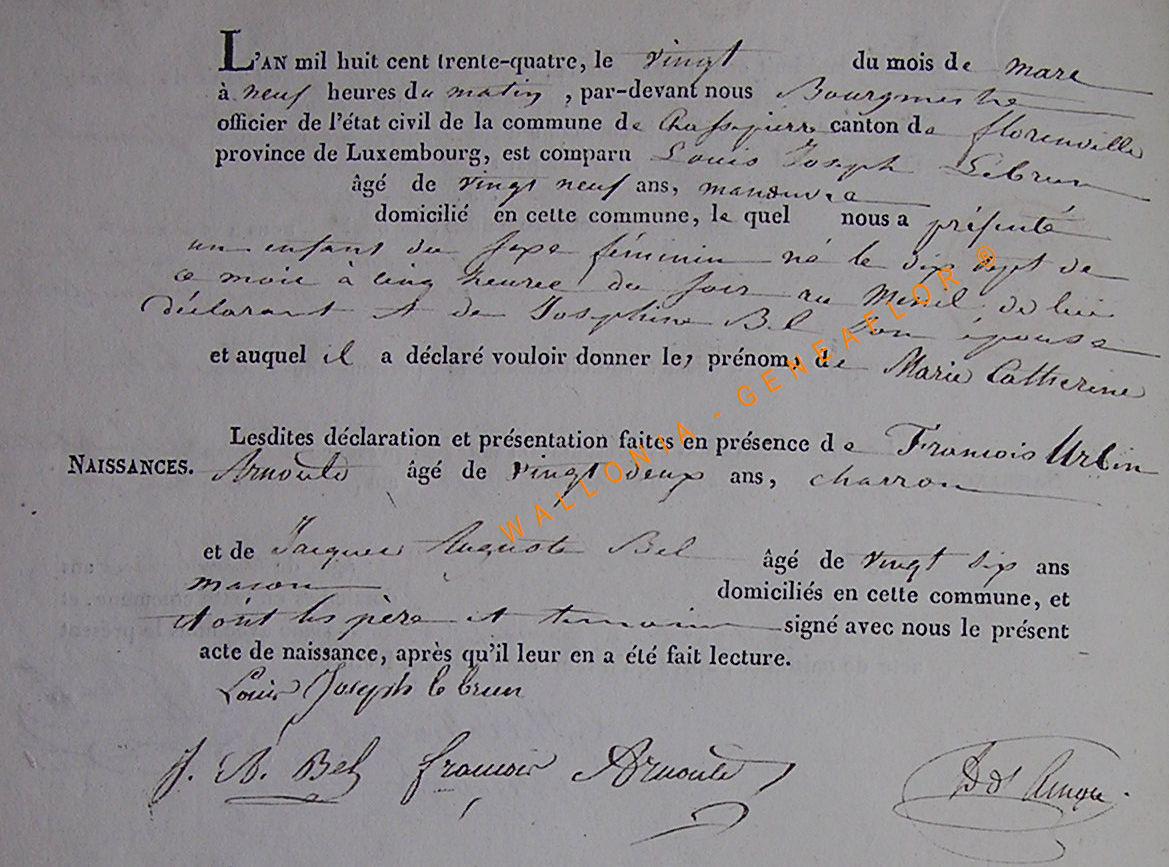 L'AN mil huit cent trente-quatre, le vingt du mois de mars
à neuf heures du matin, par-devant nous Bourgmestre
officier de l'état civil de la commune de Chassepierre canton de florenville
province de Luxembourg, est comparu Louis Joseph Lebrun
âgé de vingt neuf ans, manœuvre
domicilié en cette commune, le quel nous a présenté
un enfant du sexe féminin né le dix sept de
ce mois à cinq heures du soir au Menil, de lui
déclarant et de Josephine Bel son épouse
et auquel il a déclaré vouloir donner les prénoms de Marie Catherine
Lesdites déclaration et présentation faites en présence de François Urbin
NAISSANCES. Arnould âgé de vingt deux ans, charron
et de Jacques Auguste Bel âgé de vingt six ans
maçon domiciliés en cette commune, et
et ont les père et temoins signé avec nous le présent
acte de naissance, après qu'il leur en a été fait lecture.
Louis Joseph le brun
J. A. Bel françois Arnould
WALLONIA - GENEAFLOR ®